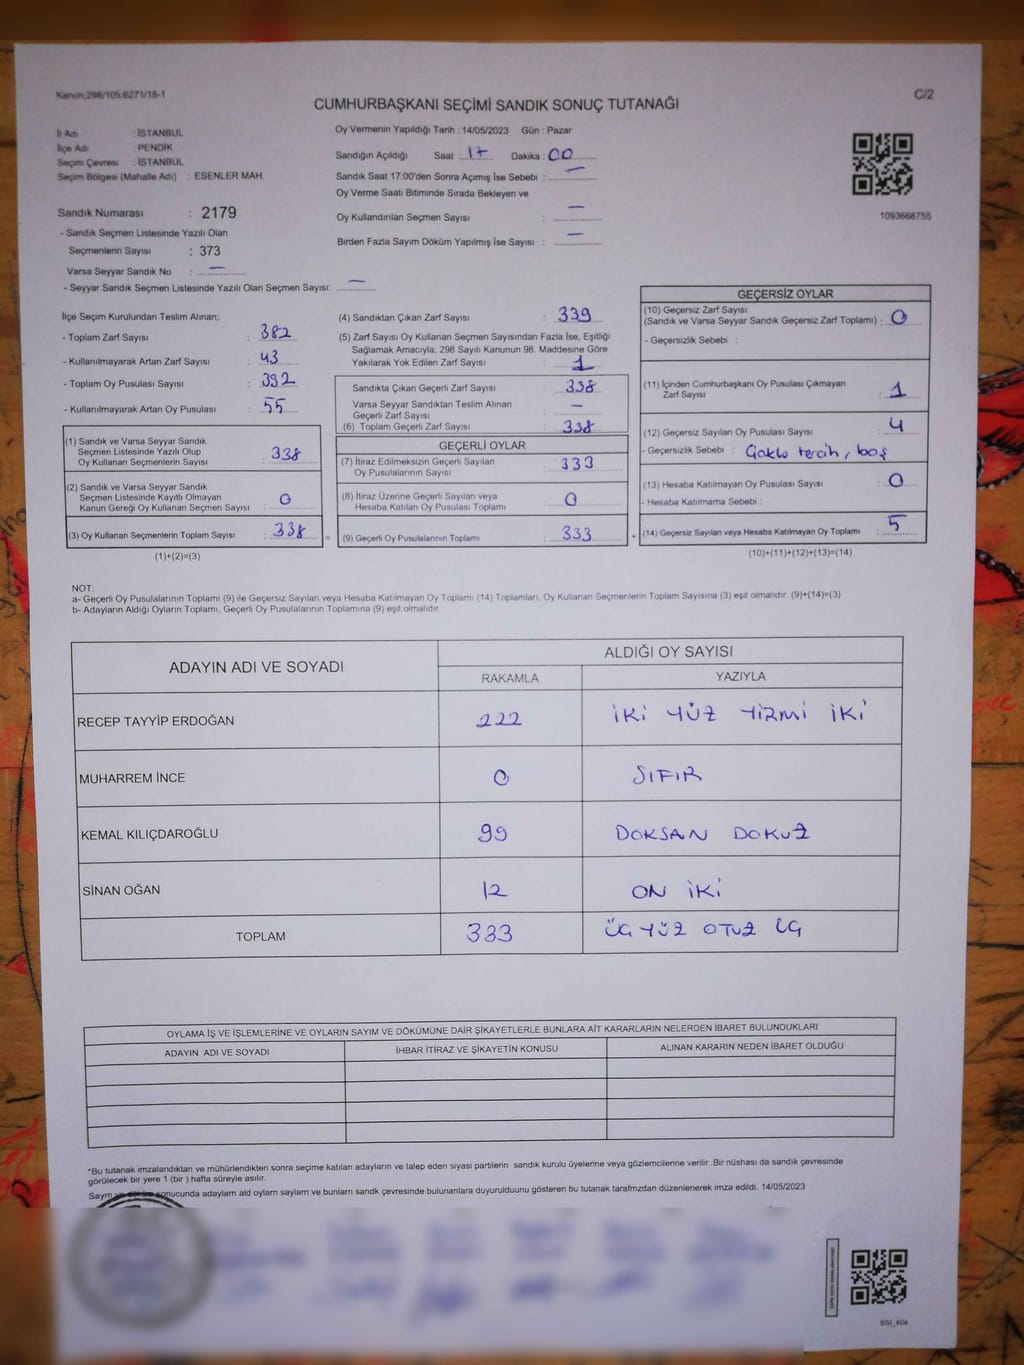 Kanun:298/105,6271/18-1
C/2
CUMHURBAŞKANI SEÇİMİ SANDIK SONUÇ TUTANAĞI
İl Adı : İSTANBUL
İlçe Adı : PENDİK
Seçim Çevresi : İSTANBUL
Seçim Bölgesi (Mahalle Adı) : ESENLER MAH.
Sandık Numarası : 2179
- Sandık Seçmen Listesinde Yazılı Olan
Seçmenlerin Sayısı : 373
Varsa Seyyar Sandık No : —
- Seyyar Sandık Seçmen Listesinde Yazılı Olan Seçmen Sayısı: —
Oy Vermenin Yapıldığı Tarih : 14/05/2023 Gün : Pazar
Sandığın Açıldığı Saat : 17 Dakika : 00
Sandık Saat 17:00'den Sonra Açımış İse Sebebi : —
Oy Verme Saati Bitiminde Sırada Bekleyen ve
Oy Kullandırılan Seçmen Sayısı : —
Birden Fazla Sayım Döküm Yapılmış İse Sayısı : —
1093668755
İlçe Seçim Kurulundan Teslim Alınan;
- Toplam Zarf Sayısı : 382
- Kullanılmayarak Artan Zarf Sayısı : 43
- Toplam Oy Pusulası Sayısı : 392
- Kullanılmayarak Artan Oy Pusulası : 55
(1) Sandık ve Varsa Seyyar Sandık
Seçmen Listesinde Yazılı Olup
Oy Kullanan Seçmenlerin Sayısı : 338
(2) Sandık ve Varsa Seyyar Sandık
Seçmen Listesinde Kayıtlı Olmayan
Kanun Gereği Oy Kullanan Seçmen Sayısı : 0
(3) Oy Kullanan Seçmenlerin Toplam Sayısı : 338
(1)+(2)=(3)
(4) Sandıktan Çıkan Zarf Sayısı : 339
(5) Zarf Sayısı Oy Kullanan Seçmen Sayısından Fazla İse, Eşitliği
Sağlamak Amacıyla; 298 Sayılı Kanunun 98. Maddesine Göre
Yakılarak Yok Edilen Zarf Sayısı : 1
Sandıkta Çıkan Geçerli Zarf Sayısı : 338
Varsa Seyyar Sandıktan Teslim Alınan
Geçerli Zarf Sayısı : —
(6) Toplam Geçerli Zarf Sayısı : 338
GEÇERLİ OYLAR
(7) İtiraz Edilmeksizin Geçerli Sayılan
Oy Pusulalarının Sayısı : 333
(8) İtiraz Üzerine Geçerli Sayılan veya
Hesaba Katılan Oy Pusulası Toplamı : 0
= (9) Geçerli Oy Pusulalarının Toplamı : 333
GEÇERSİZ OYLAR
(10) Geçersiz Zarf Sayısı
(Sandık ve Varsa Seyyar Sandık Geçersiz Zarf Toplamı) : 0
- Geçersizlik Sebebi :
(11) İçinden Cumhurbaşkanı Oy Pusulası Çıkmayan
Zarf Sayısı : 1
(12) Geçersiz Sayılan Oy Pusulası Sayısı : 4
- Geçersizlik Sebebi : Çoklu tercih, boş
(13) Hesaba Katılmayan Oy Pusulası Sayısı : 0
- Hesaba Katılmama Sebebi :
+ (14) Geçersiz Sayılan veya Hesaba Katılmayan Oy Toplamı : 5
(10)+(11)+(12)+(13)=(14)
NOT:
a- Geçerli Oy Pusulalarının Toplamı (9) ile Geçersiz Sayılan veya Hesaba Katılmayan Oy Toplamı (14) Toplamları, Oy Kullanan Seçmenlerin Toplam Sayısına (3) eşit olmalıdır. (9)+(14)=(3)
b- Adayların Aldığı Oyların Toplamı, Geçerli Oy Pusulalarının Toplamına (9) eşit olmalıdır.
ADAYIN ADI VE SOYADI
ALDIĞI OY SAYISI
RAKAMLA YAZIYLA
RECEP TAYYİP ERDOĞAN 222 İKİ YÜZ YİRMİ İKİ
MUHARREM İNCE 0 SIFIR
KEMAL KILIÇDAROĞLU 99 DOKSAN DOKUZ
SİNAN OĞAN 12 ON İKİ
TOPLAM 333 ÜÇ YÜZ OTUZ ÜÇ
OYLAMA İŞ VE İŞLEMLERİNE VE OYLARIN SAYIM VE DÖKÜMÜNE DAİR ŞİKAYETLERLE BUNLARA AİT KARARLARIN NELERDEN İBARET BULUNDUKLARI
ADAYIN ADI VE SOYADI İHBAR İTİRAZ VE ŞİKAYETİN KONUSU ALINAN KARARIN NEDEN İBARET OLDUĞU
*Bu tutanak imzalandıktan ve mühürlendikten sonra seçime katılan adayların ve talep eden siyasi partilerin sandık kurulu üyelerine veya gözlemcilerine verilir .Bir nüshası da sandık çevresinde
görülecek bir yere 1 (bir ) hafta süreyle asılır.
Saym ve döküm sonucunda adaylarn ald oylarn saylarn ve bunlarn sandk çevresinde bulunanlara duyurulduunu gösteren bu tutanak tarafmzdan düzenlenerek imza edildi. 14/05/2023
SSI_404